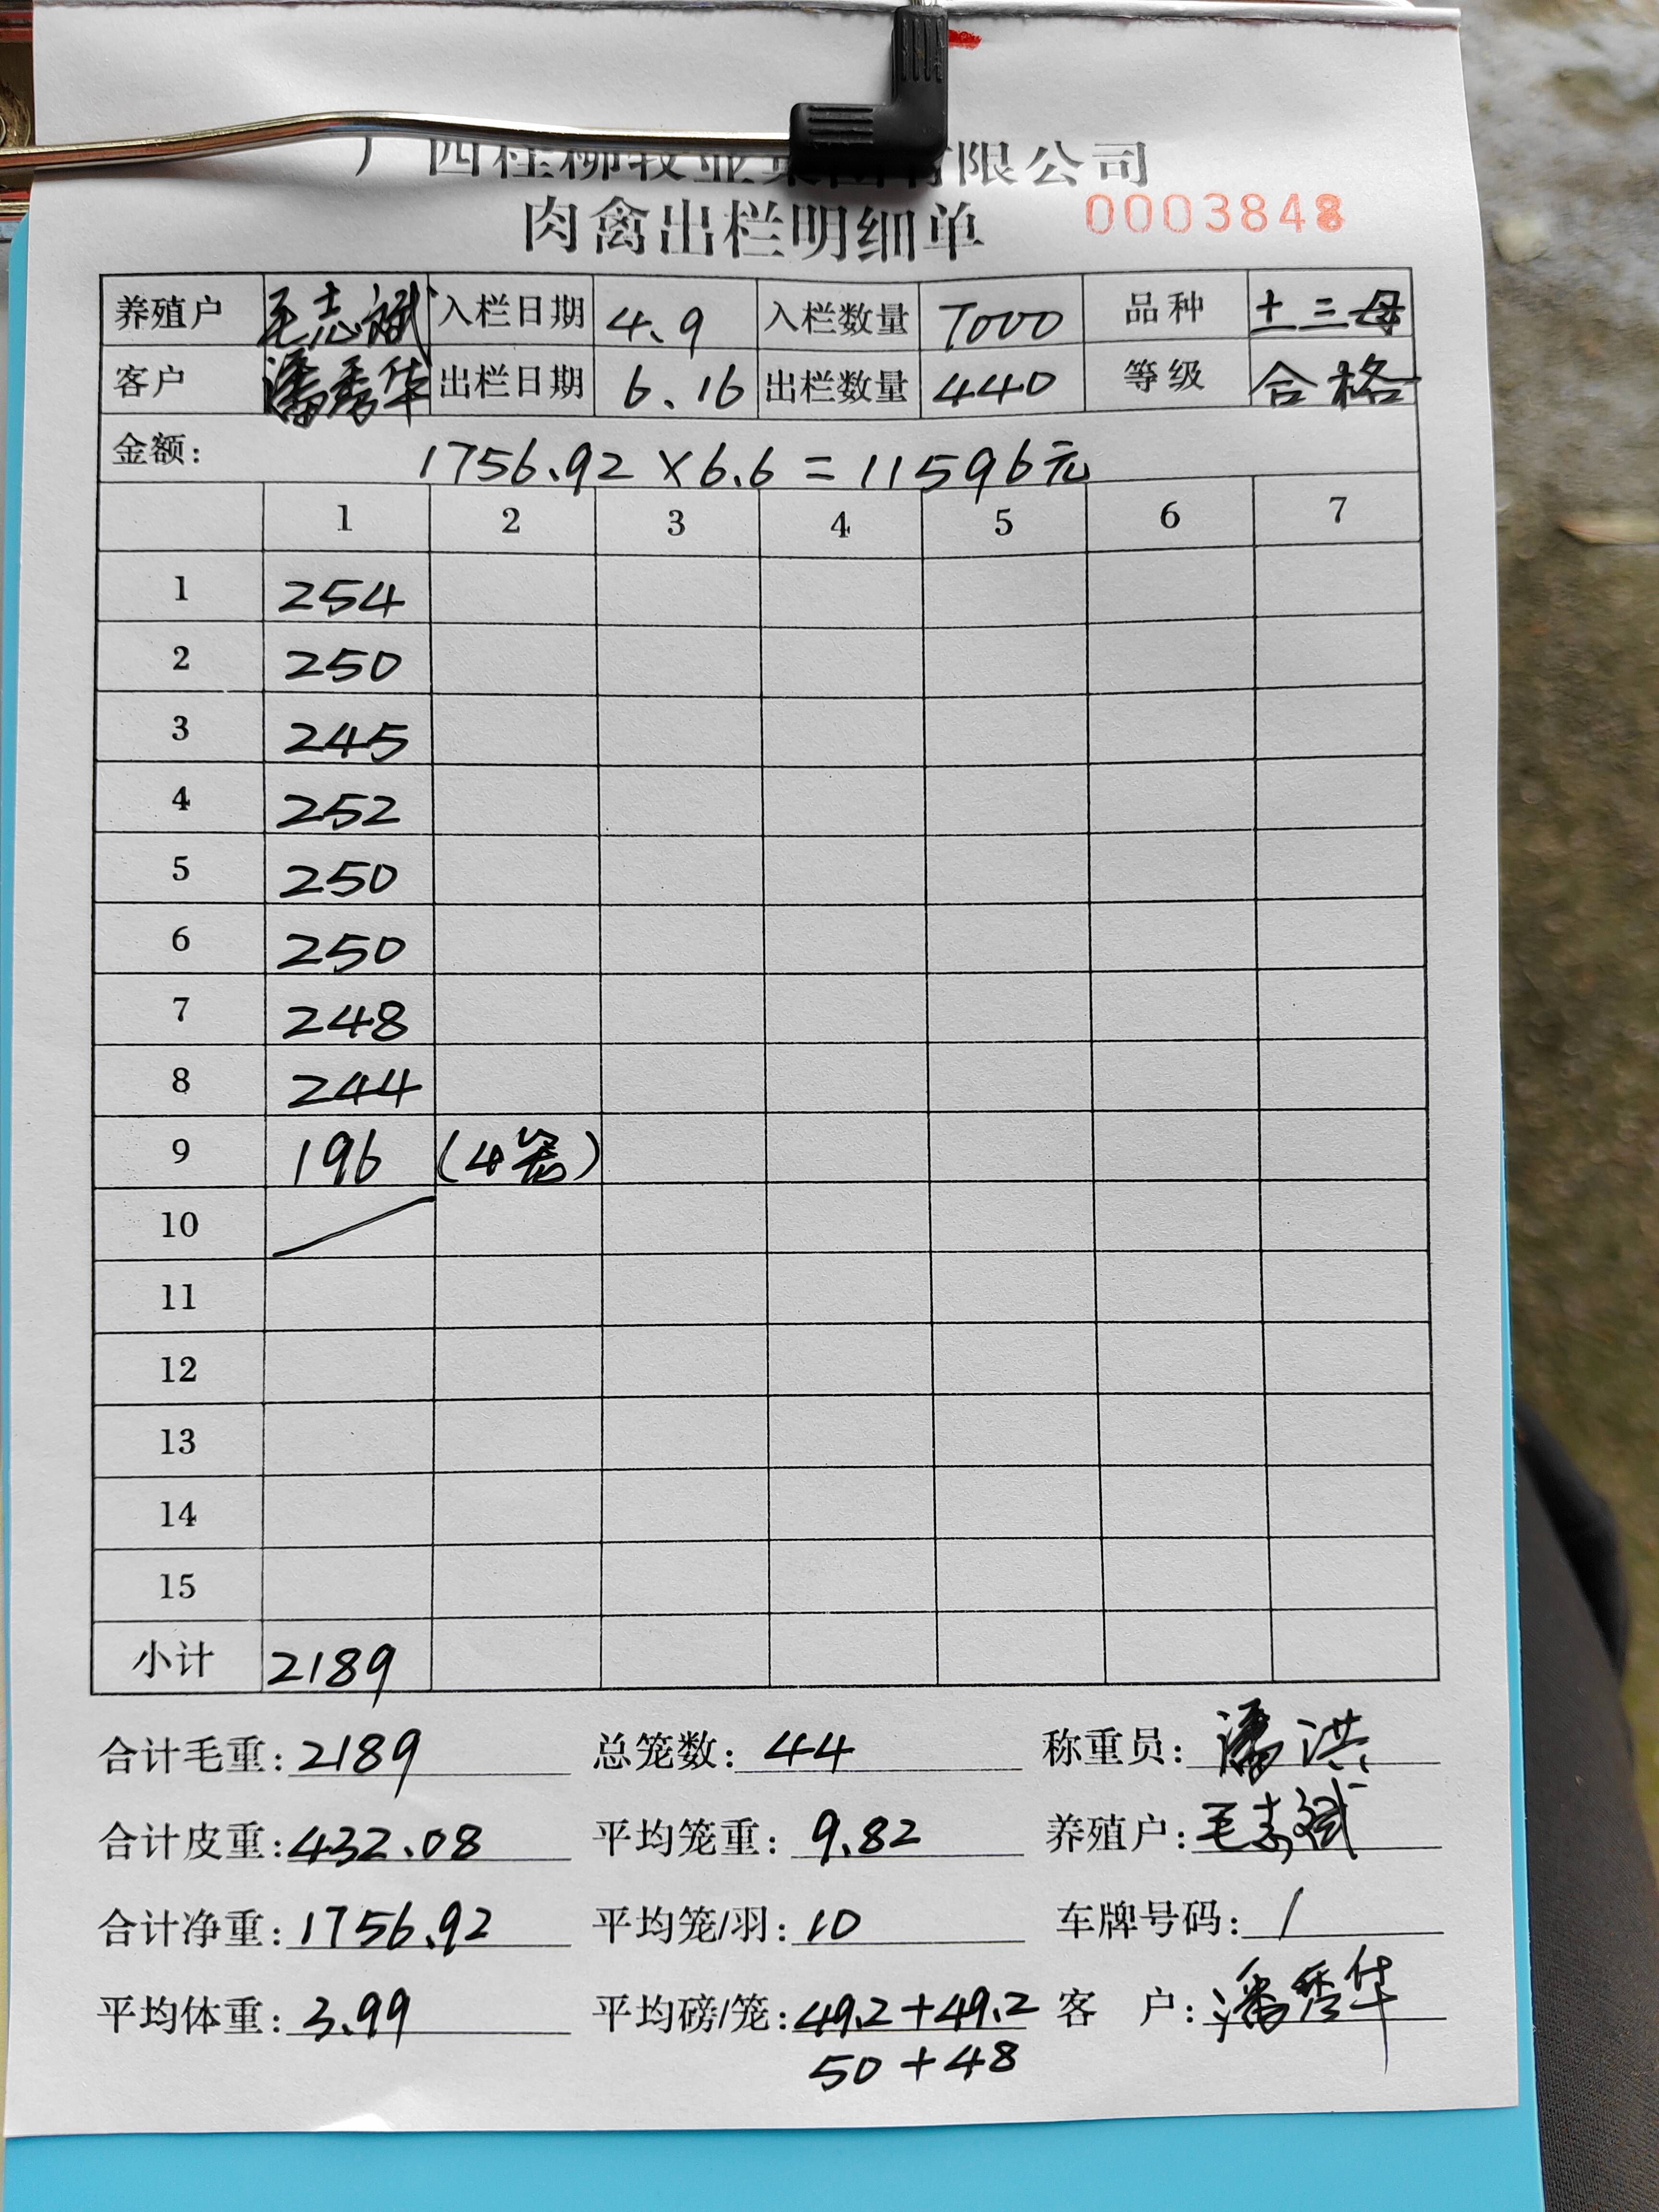 广西桂柳牧业集团有限公司
肉禽出栏明细单 0003848
养殖户 毛志斌 入栏日期 4.9 入栏数量 7000 品种 土三母
客户 潘秀华 出栏日期 6.16 出栏数量 440 等级 合格
金额: 1756.92×6.6=11596元
1 2 3 4 5 6 7
1 254
2 250
3 245
4 252
5 250
6 250
7 248
8 244
9 196 (4笼)
10
11
12
13
14
15
小计 2189
合计毛重: 2189 总笼数: 44 称重员: 潘洪
合计皮重: 432.08 平均笼重: 9.82 养殖户: 毛志斌
合计净重: 1756.92 平均笼/羽: 10 车牌号码: /
平均体重: 3.99 平均磅/笼: 49.2+49.2 客 户: 潘秀华
50+48